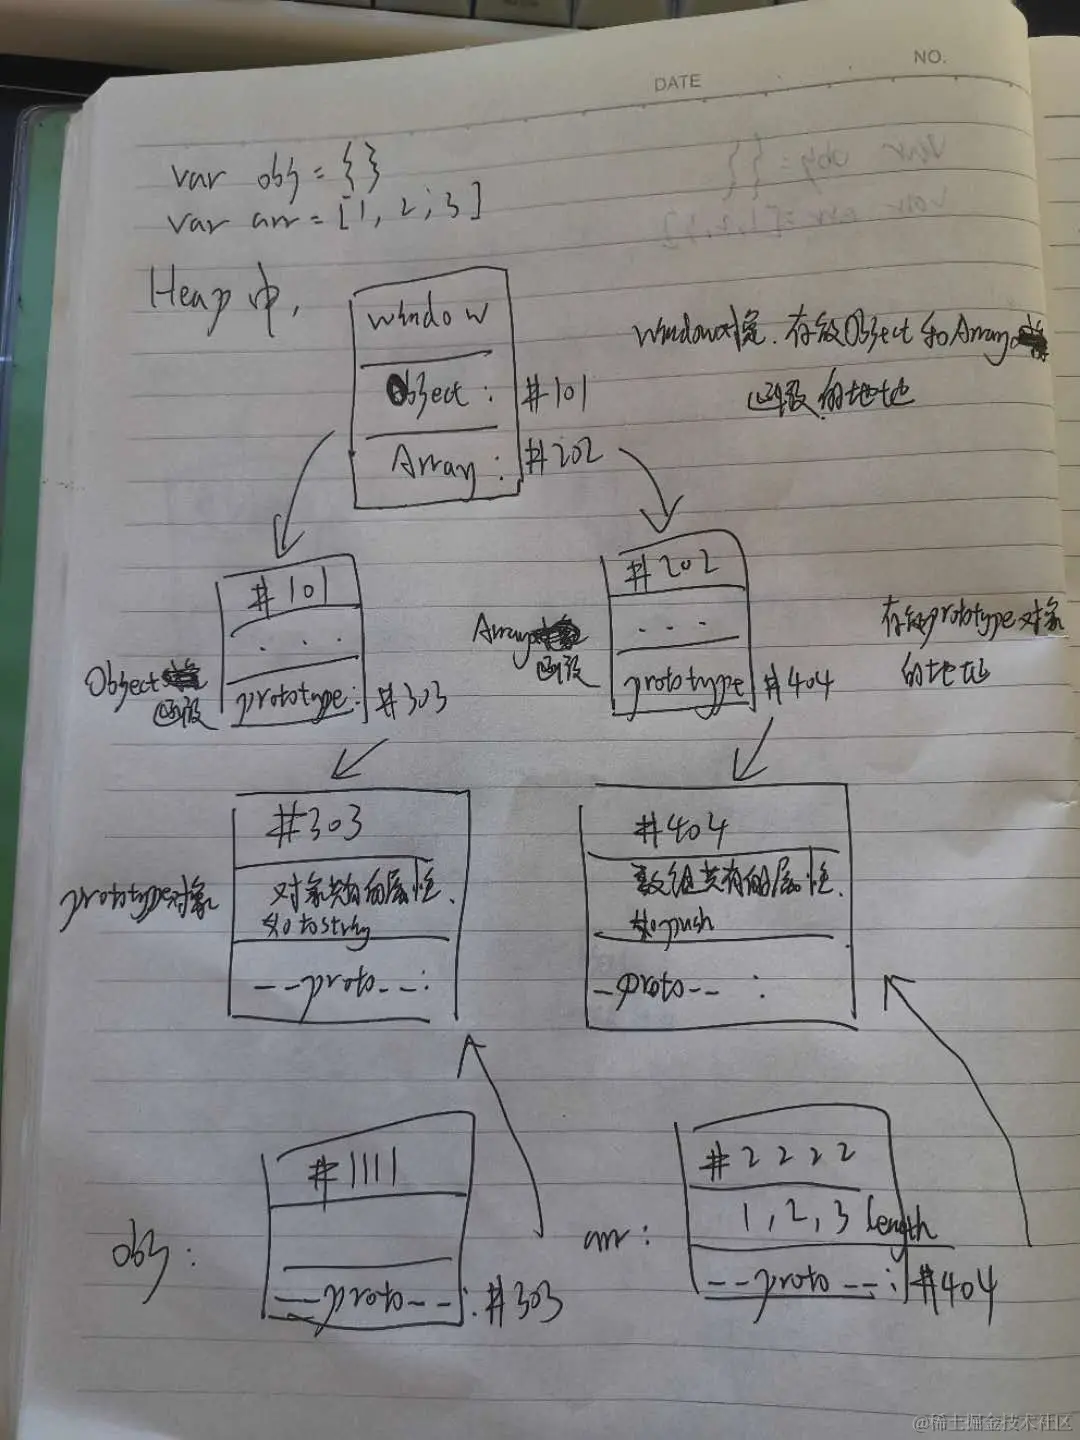 DATE
NO.
var obj = { }
var arr = [1, 2, 3]
Heap 中,
window
window对象. 存放Object和Array
函数的地址
Object : #101
Array : #202
#101
. . .
Object
函数
prototype : #303
#202
. . .
Array
函数
prototype #404
存放prototype对象
的地址
#303
prototype对象
对象共有的属性.
如toString
--proto--:
#404
数组共有的属性.
如push
-proto-- :
#1111
obj :
--proto--: #303
#2222
arr :
1, 2, 3 length
--proto--: #404
@稀土掘金技术社区